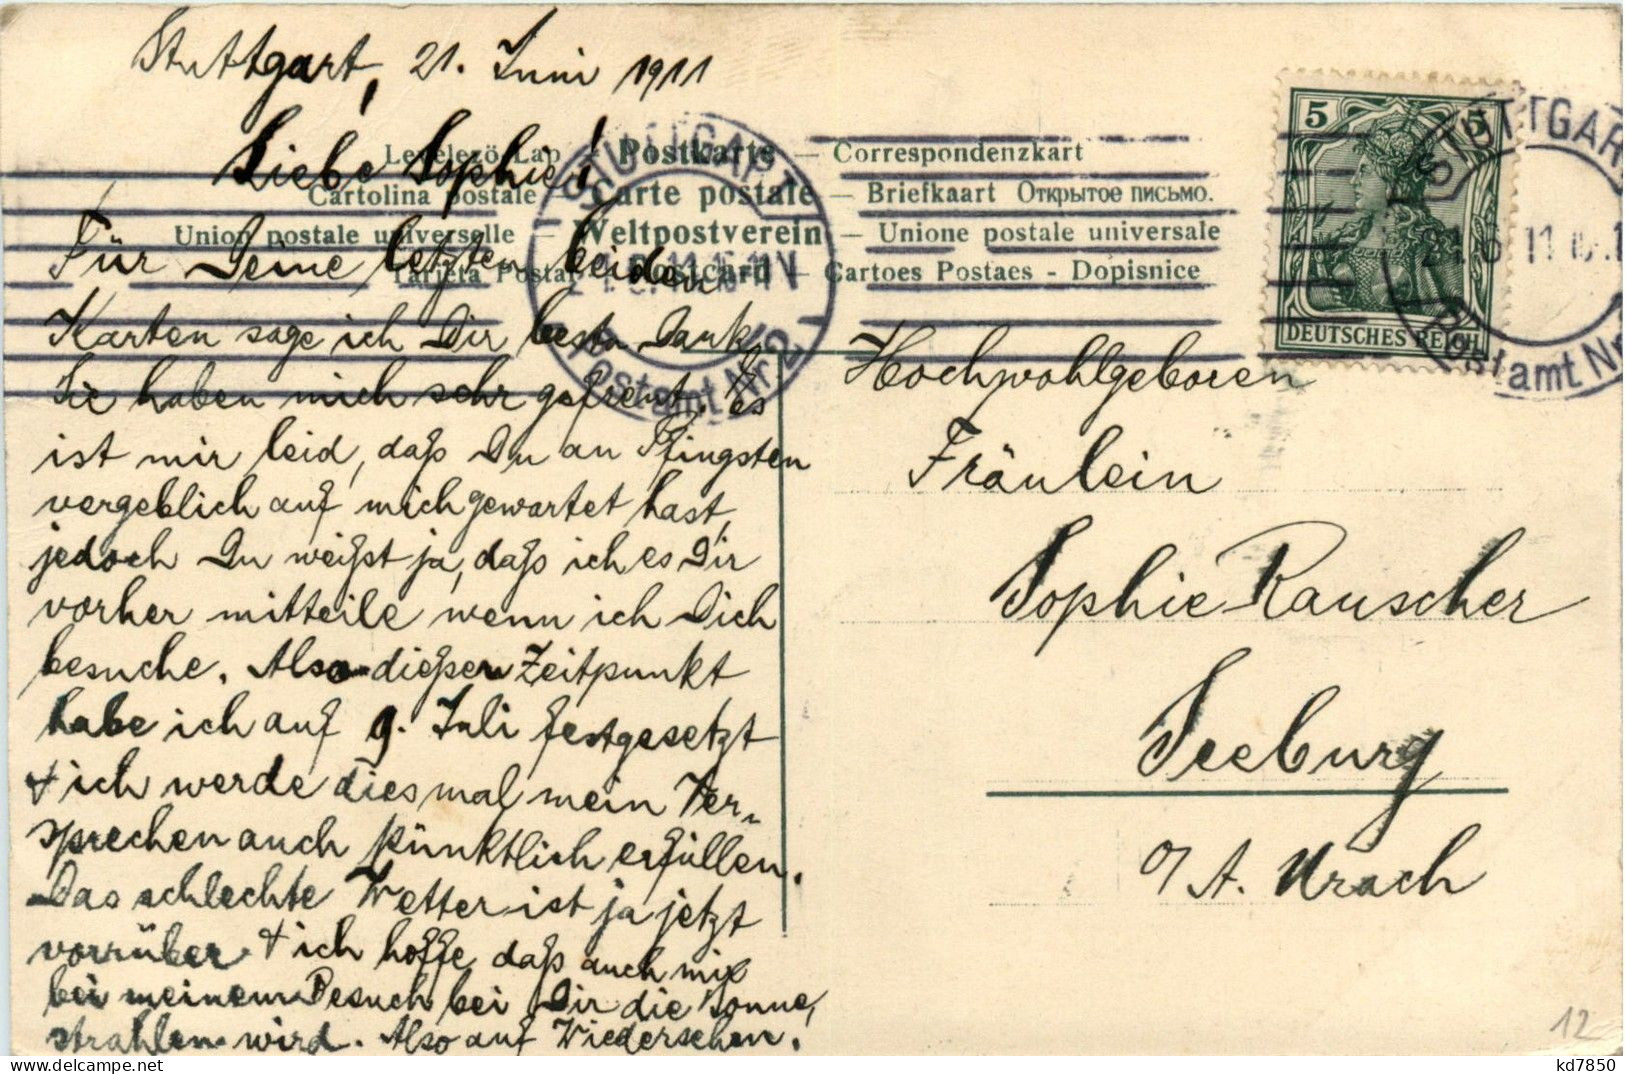 Stuttgart, 21. Juni 1911
Liebe Sophie!
Levelező-Lap — Postkarte — Correspondenzkart
Cartolina postale — Carte postale — Briefkaart Открытое письмо.
Union postale universelle — Weltpostverein — Unione postale universale
Tarjeta Postal Postcard — Cartoes Postaes - Dopisnice
Für Deine letzten beiden
Karten sage ich Dir besten Dank.
Sie haben mich sehr gefreut. Es
ist mir leid, daß Du an Pfingsten
vergeblich auf mich gewartet hast,
jedoch Du weißt ja, daß ich es Dir
vorher mitteile wenn ich Dich
besuche. Also dießen Zeitpunkt
habe ich auf 9. Juli festgesetzt
+ ich werde diesmal mein Ver-
sprechen auch pünktlich erfüllen.
Das schlechte Wetter ist ja jetzt
vorrüber + ich hoffe daß auch mir
bei meinem Besuch bei Dir die Sonne,
strahlen wird. Also auf Wiedersehen.
5 5
DEUTSCHES REICH
STUTTGART
21.6.11.
Postamt Nr 2
STUTTGART
21.6.11
Postamt Nr
Hochwohlgeboren
Fräulein
Sophie Rauscher
Seeburg
O/A. Urach
12
kd7850